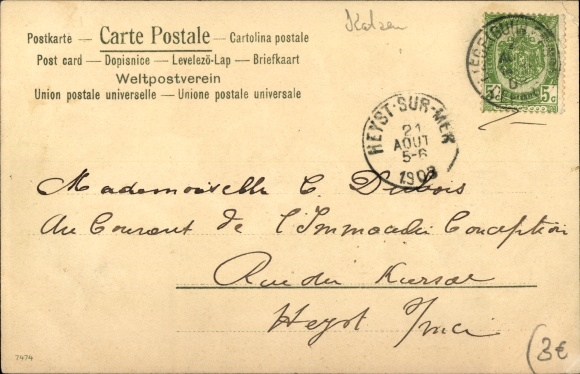 Postkarte — Carte Postale — Cartolina postale
Post card — Dopisnice — Levelező-Lap — Briefkaart
Weltpostverein
Union postale universelle — Unione postale universale
Katzen
5c
HEYST-SUR-MER
21
AOUT
5-6
1903
Mademoiselle C. Dubois
Au Couvent de l'Immaculée Conception
Rue du Kursaal
Heyst s/mer
7474
3€